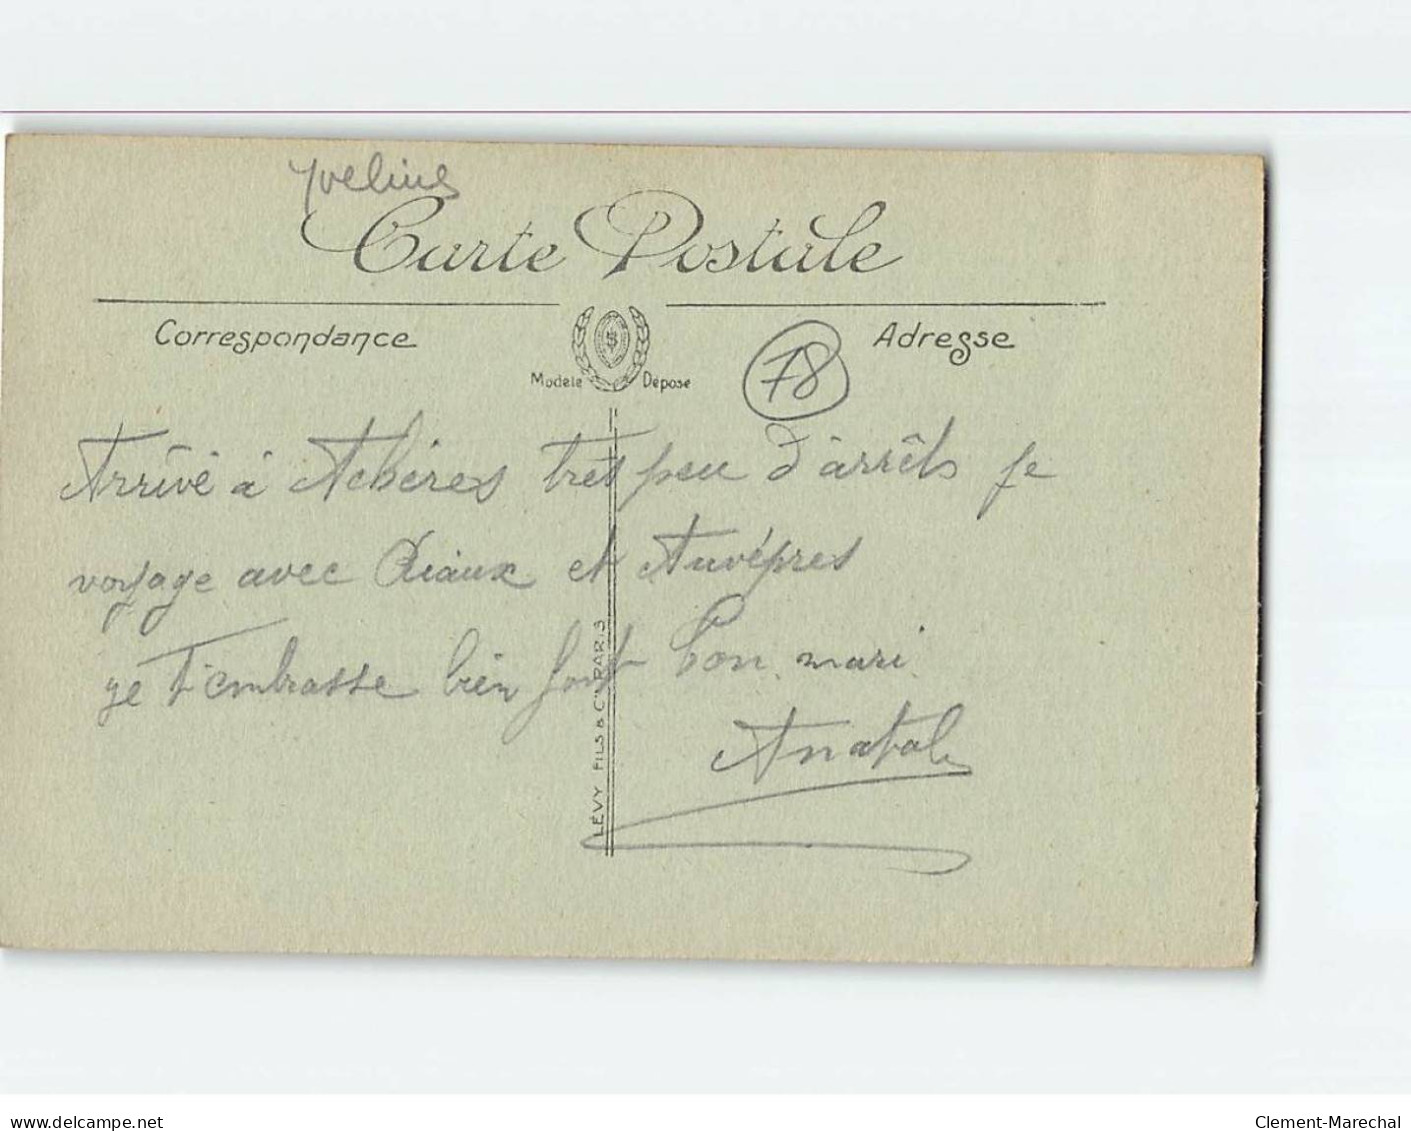 Yvelines
Carte Postale
Correspondance
Adresse
Modèle Déposé
78
Arrivé à Achères très peu d'àrrêts je
voyage avec et
je T'embrasse bien fort Ton mari
Anatole
LÉVY FILS & Cie PARIS
delcampe.net
Clement-Marechal